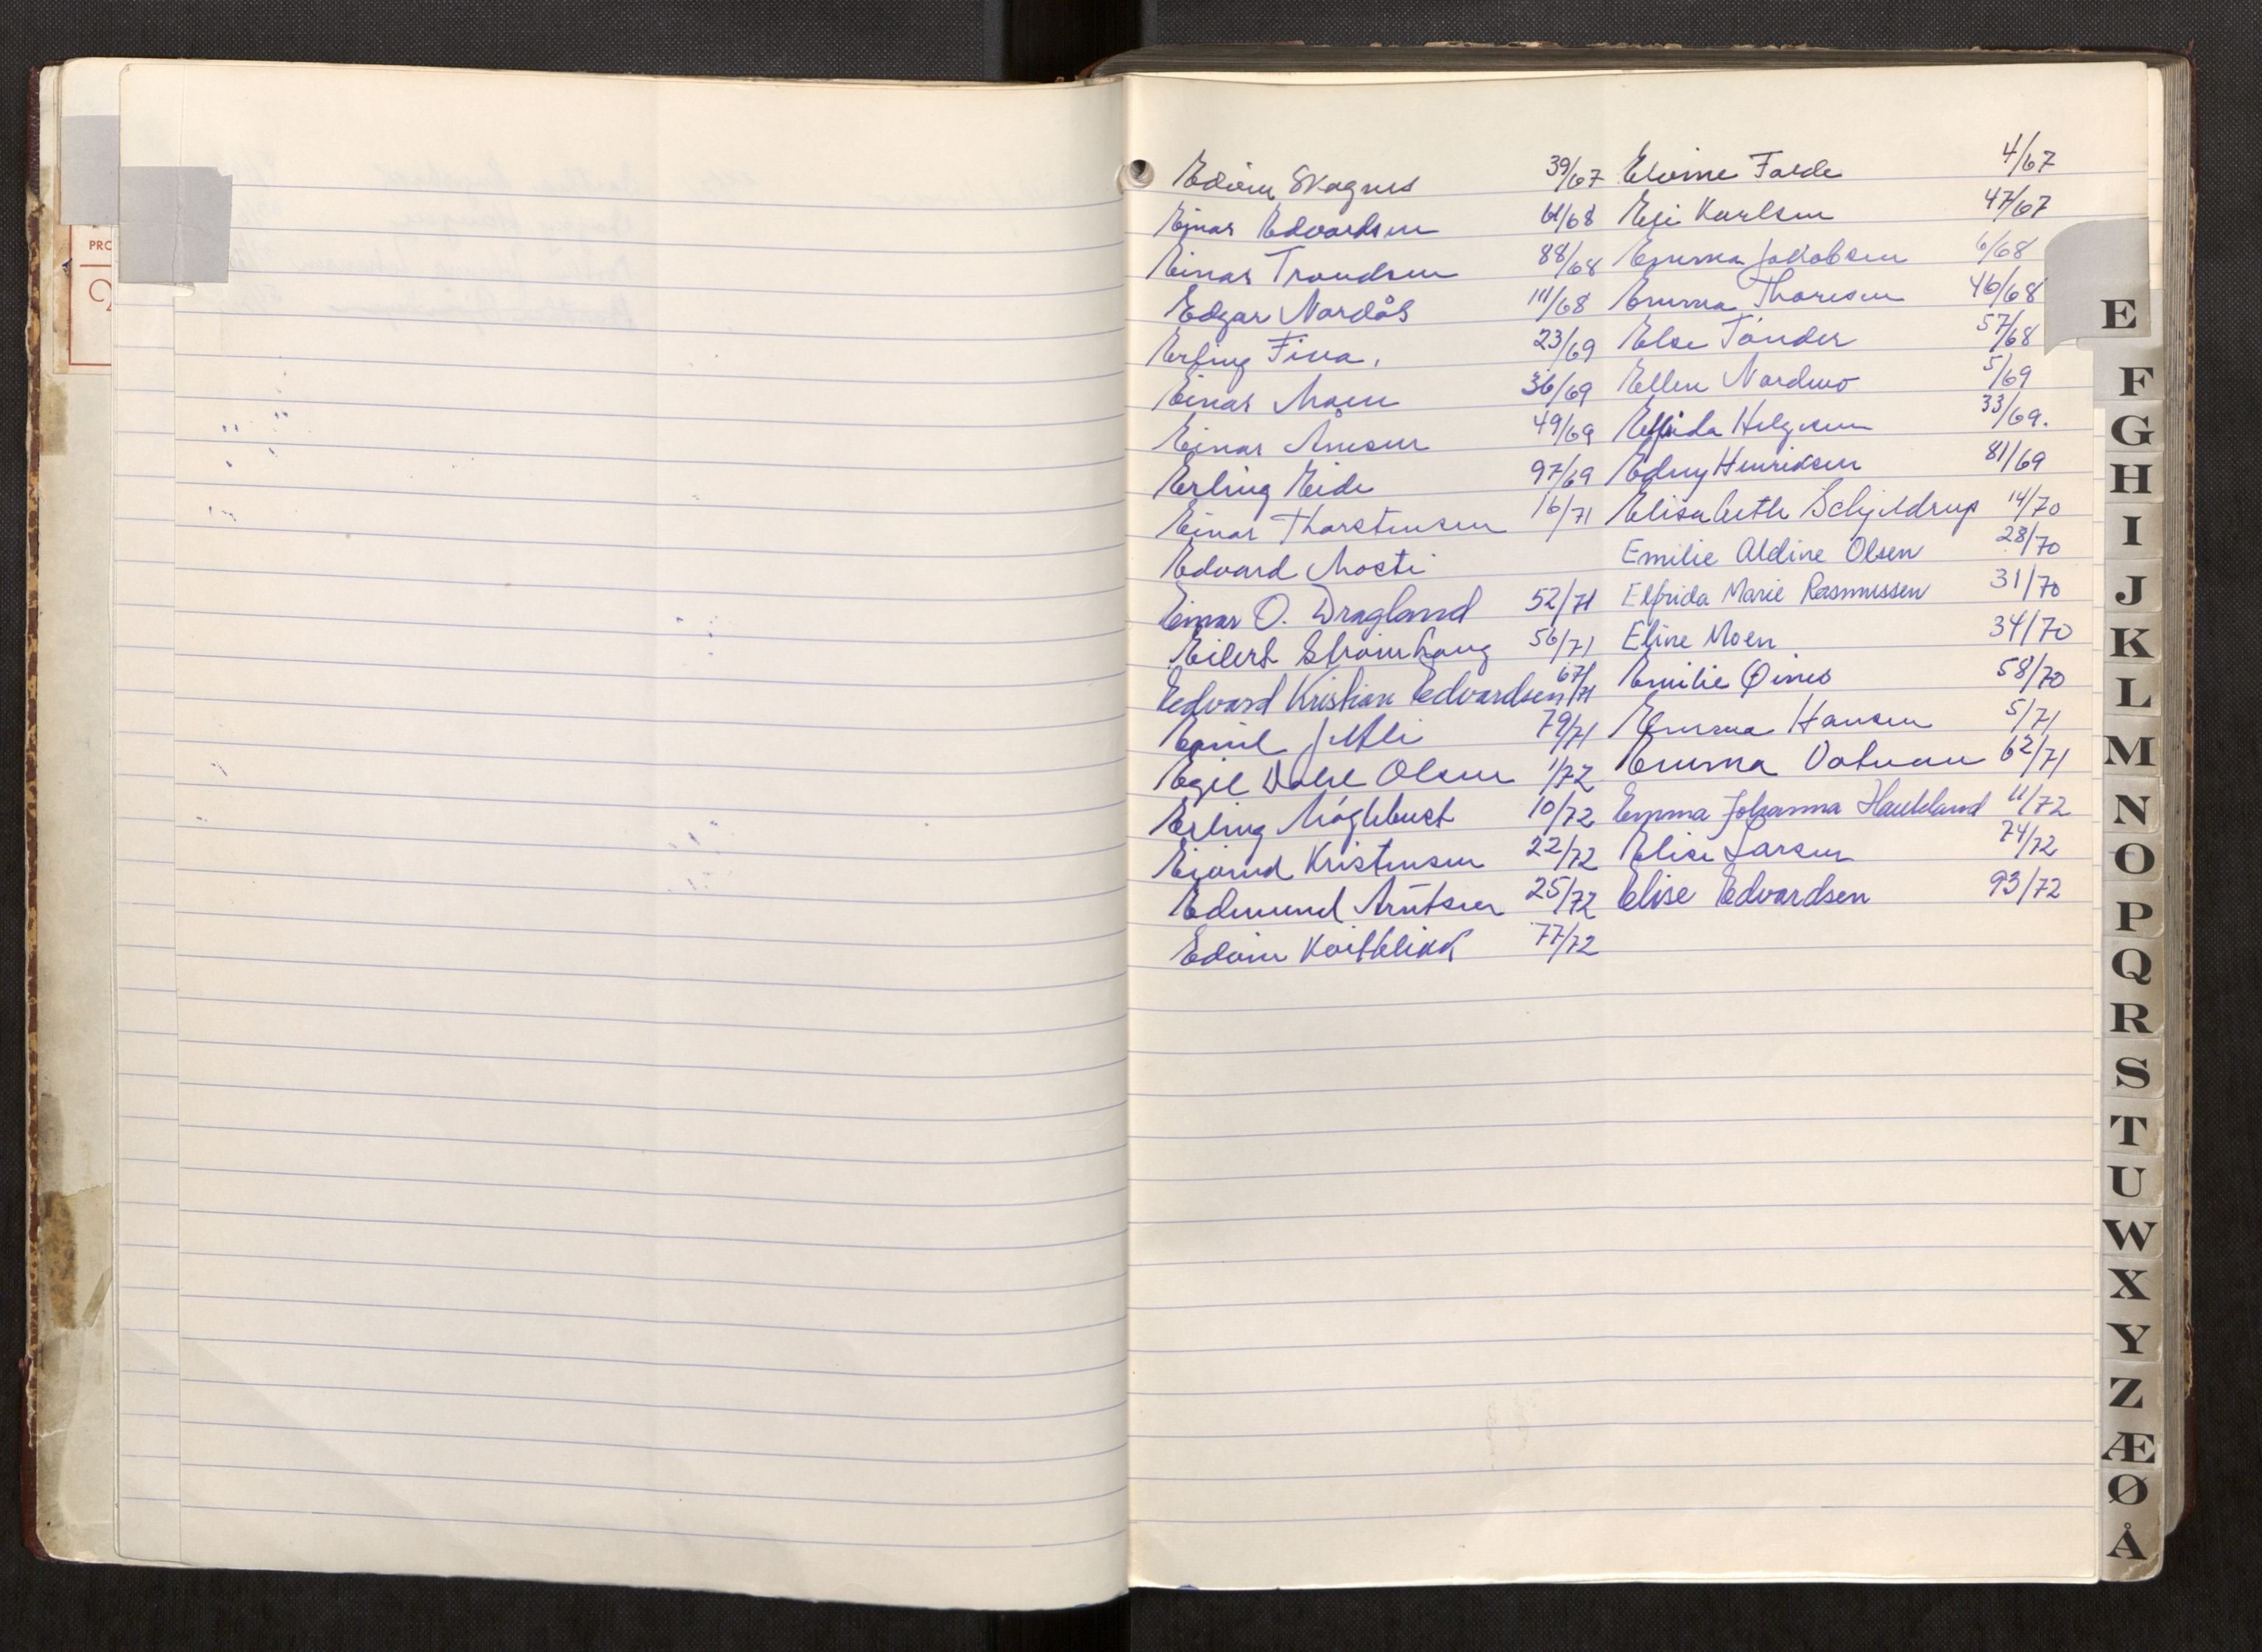 PRO
Edvin Skagnes 39/67
Einar Edvardsen 61/68
Einar Trondsen 88/68
Edgar Nordås 111/68
Erling Fina. 23/69
Einar Moen 36/69
Einar Arnesen 49/69
Erling Eide 97/69
Einar Thorstensen 16/71
Edvard Mosti
Einar O. Dragland 52/71
Eilert Strømhaug 56/71
Edvard Kristian Edvardsen 67/71
Emil 79/71
Egil Dahl Olsen 1/72
Erling 10/72
Eivind Kristensen 22/72
Edmund Arntsen 25/72
Edvin Kvitblikk 77/72
Elvine Folde 4/67
Eli Karlsen 47/67
Emma Jakobsen 6/68
Emma Thoresen 46/68
Else Tønder 57/68
Ellen Nordmo 5/69
Elfrida Helgesen 33/69.
Edny Henriksen 81/69
Elisabeth Schjeldrup 14/70
Emilie Aldine Olsen 28/70
Elfrida Marie Rasmussen 31/70
Eline Moen 34/70
Emilie Øines 58/70
Emma Hansen 5/71
Emma Votvan 62/71
Emma Johanna Haukland 11/72
Elise Larsen 74/72
Elise Edvardsen 93/72
E
F
G
H
I
J
K
L
M
N
O
P
Q
R
S
T
U
W
X
Y
Z
Æ
Ø
Å